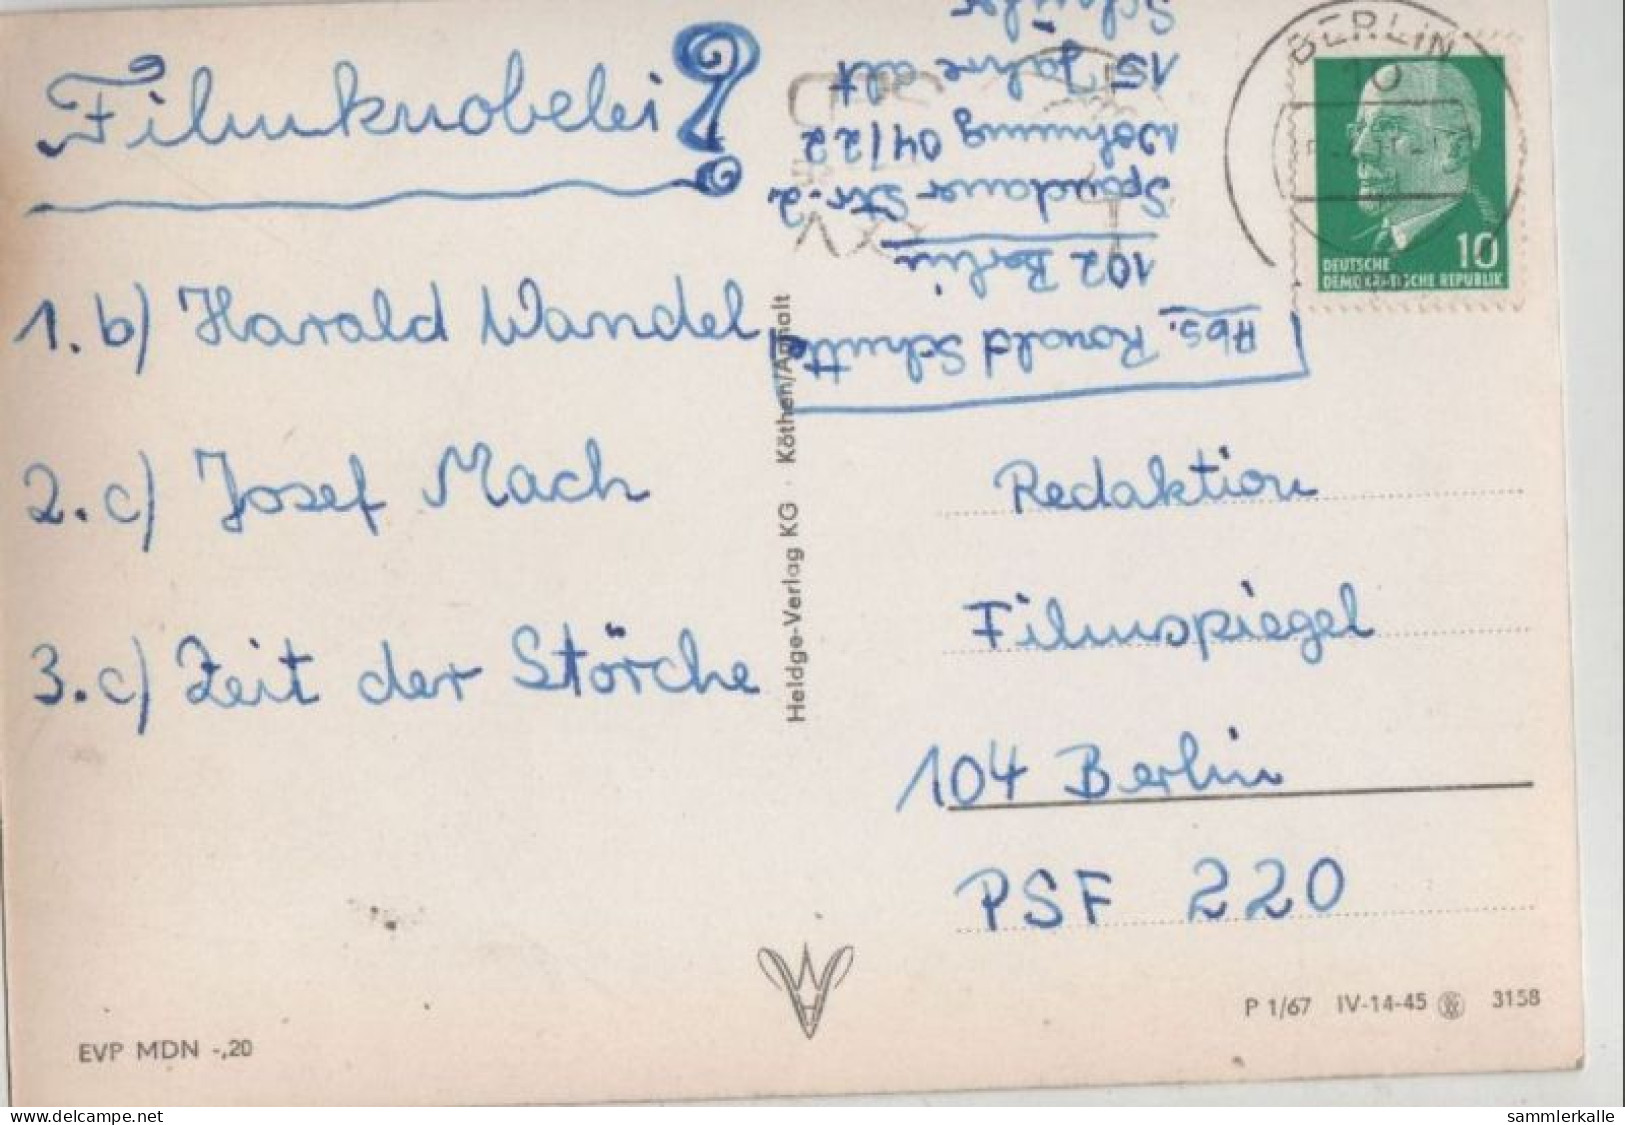 Filmknobelei?
1. b) Harald Wandel
2. c) Josef Mach
3. c) Zeit der Störche
Abs. Ronald Schüttel
102 Berlin
Spandauer Str. 2
Wohnung 04/22
15 Jahre alt
Schüler
BERLIN
10
10
DEUTSCHE
DEMOKRATISCHE REPUBLIK
Heldge-Verlag KG · Köthen/Anhalt
Redaktion
Filmspiegel
104 Berlin
PSF 220
EVP MDN -,20
P 1/67 IV-14-45 3158
www.delcampe.net
sammlerkalle